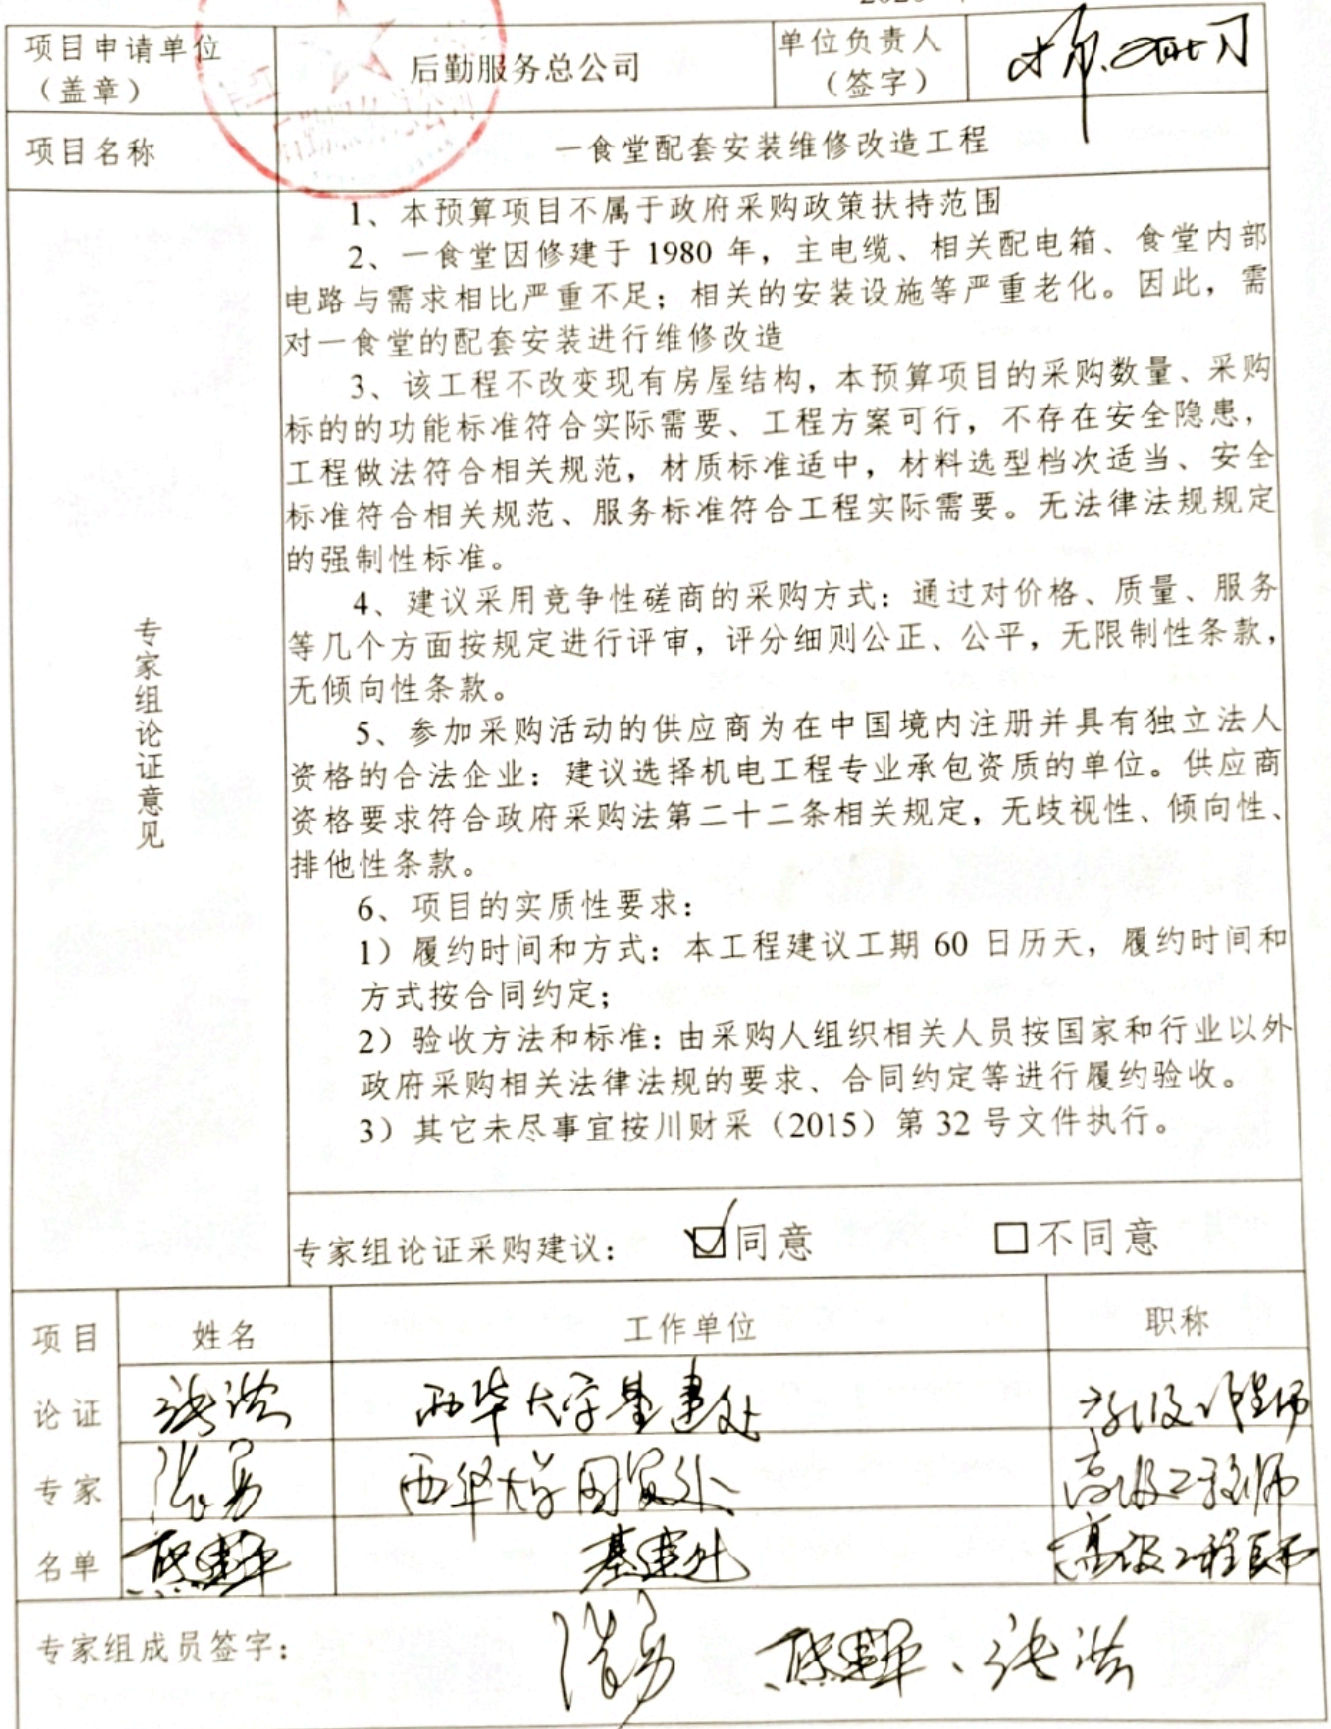 项目申请单位
（盖章）
后勤服务总公司
单位负责人
（签字）
项目名称
一食堂配套安装维修改造工程
专家组论证意见
1、本预算项目不属于政府采购政策扶持范围
2、一食堂因修建于 1980 年，主电缆、相关配电箱、食堂内部
电路与需求相比严重不足；相关的安装设施等严重老化。因此，需
对一食堂的配套安装进行维修改造
3、该工程不改变现有房屋结构，本预算项目的采购数量、采购
标的的功能标准符合实际需要、工程方案可行，不存在安全隐患，
工程做法符合相关规范，材质标准适中，材料选型档次适当、安全
标准符合相关规范、服务标准符合工程实际需要。无法律法规规定
的强制性标准。
4、建议采用竞争性磋商的采购方式：通过对价格、质量、服务
等几个方面按规定进行评审，评分细则公正、公平，无限制性条款，
无倾向性条款。
5、参加采购活动的供应商为在中国境内注册并具有独立法人
资格的合法企业：建议选择机电工程专业承包资质的单位。供应商
资格要求符合政府采购法第二十二条相关规定，无歧视性、倾向性、
排他性条款。
6、项目的实质性要求：
1）履约时间和方式：本工程建议工期 60 日历天，履约时间和
方式按合同约定；
2）验收方法和标准：由采购人组织相关人员按国家和行业以外
政府采购相关法律法规的要求、合同约定等进行履约验收。
3）其它未尽事宜按川财采（2015）第 32 号文件执行。
专家组论证采购建议： ☑同意 □不同意
项目 姓名 工作单位 职称
论证 张洪 西华大学基建处
专家 西华大学国资处 高级工程师
名单 基建处 高级工程师
专家组成员签字：
张洪